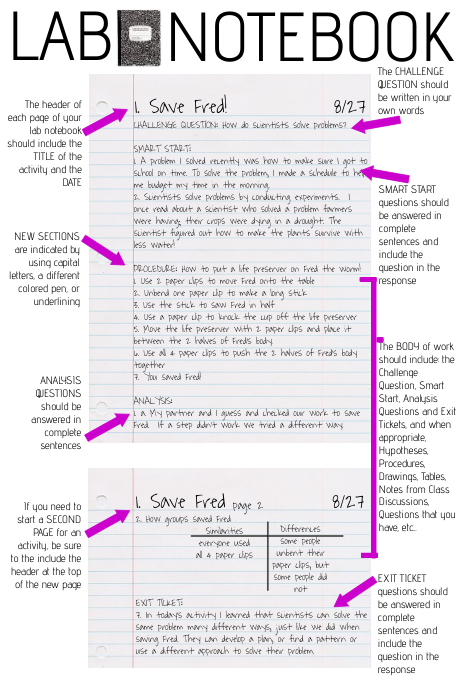 LAB NOTEBOOK
The header of
each page of your
lab notebook
should include the
TITLE of the
activity and the
DATE
NEW SECTIONS
are indicated by
using capital
letters, a different
colored pen, or
underlining
ANALYSIS
QUESTIONS
should be
answered in
complete
sentences
If you need to
start a SECOND
PAGE for an
activity, be sure
to include the
header at the top
of the new page
1. Save Fred! 8/27
CHALLENGE QUESTION: How do scientists solve problems?
SMART START:
1. A problem I solved recently was how to make sure I got to
school on time. To solve the problem, I made a schedule to help
me budget my time in the morning.
2. Scientists solve problems by conducting experiments. I
once read about a scientist who solved a problem farmers
were having, their crops were dying in a drought. The
scientist figured out how to make the plants survive with
less water!
PROCEDURE: How to put a life preserver on Fred the Worm!
1. Use 2 paper clips to move Fred onto the table
2. Unbend one paper clip to make a long stick
3. Use the stick to saw Fred in half
4. Use a paper clip to knock the cup off the life preserver
5. Move the life preserver with 2 paper clips and place it
between the 2 halves of Fred's body.
6. Use all 4 paper clips to push the 2 halves of Fred's body
together
7. You saved Fred!
ANALYSIS:
1. a. My partner and I guess and checked our work to save
Fred. If a step didn't work we tried a different way.
1. Save Fred page 2 8/27
2. How groups saved Fred
Similarities Differences
everyone used
all 4 paper clips
some people
unbent their
paper clips, but
some people did
not
EXIT TICKET:
7. In today's activity I learned that scientists can solve the
same problem many different ways, just like we did when
saving Fred. They can develop a plan, or find a pattern or
use a different approach to solve their problem.
The CHALLENGE
QUESTION should
be written in your
own words
SMART START
questions should
be answered in
complete
sentences and
include the
question in the
response
The BODY of work
should include the
Challenge
Question, Smart
Start, Analysis
Questions and Exit
Tickets, and when
appropriate,
Hypotheses,
Procedures,
Drawings, Tables,
Notes from Class
Discussions,
Questions that you
have, etc..
EXIT TICKET
questions should
be answered in
complete
sentences and
include the
question in the
response